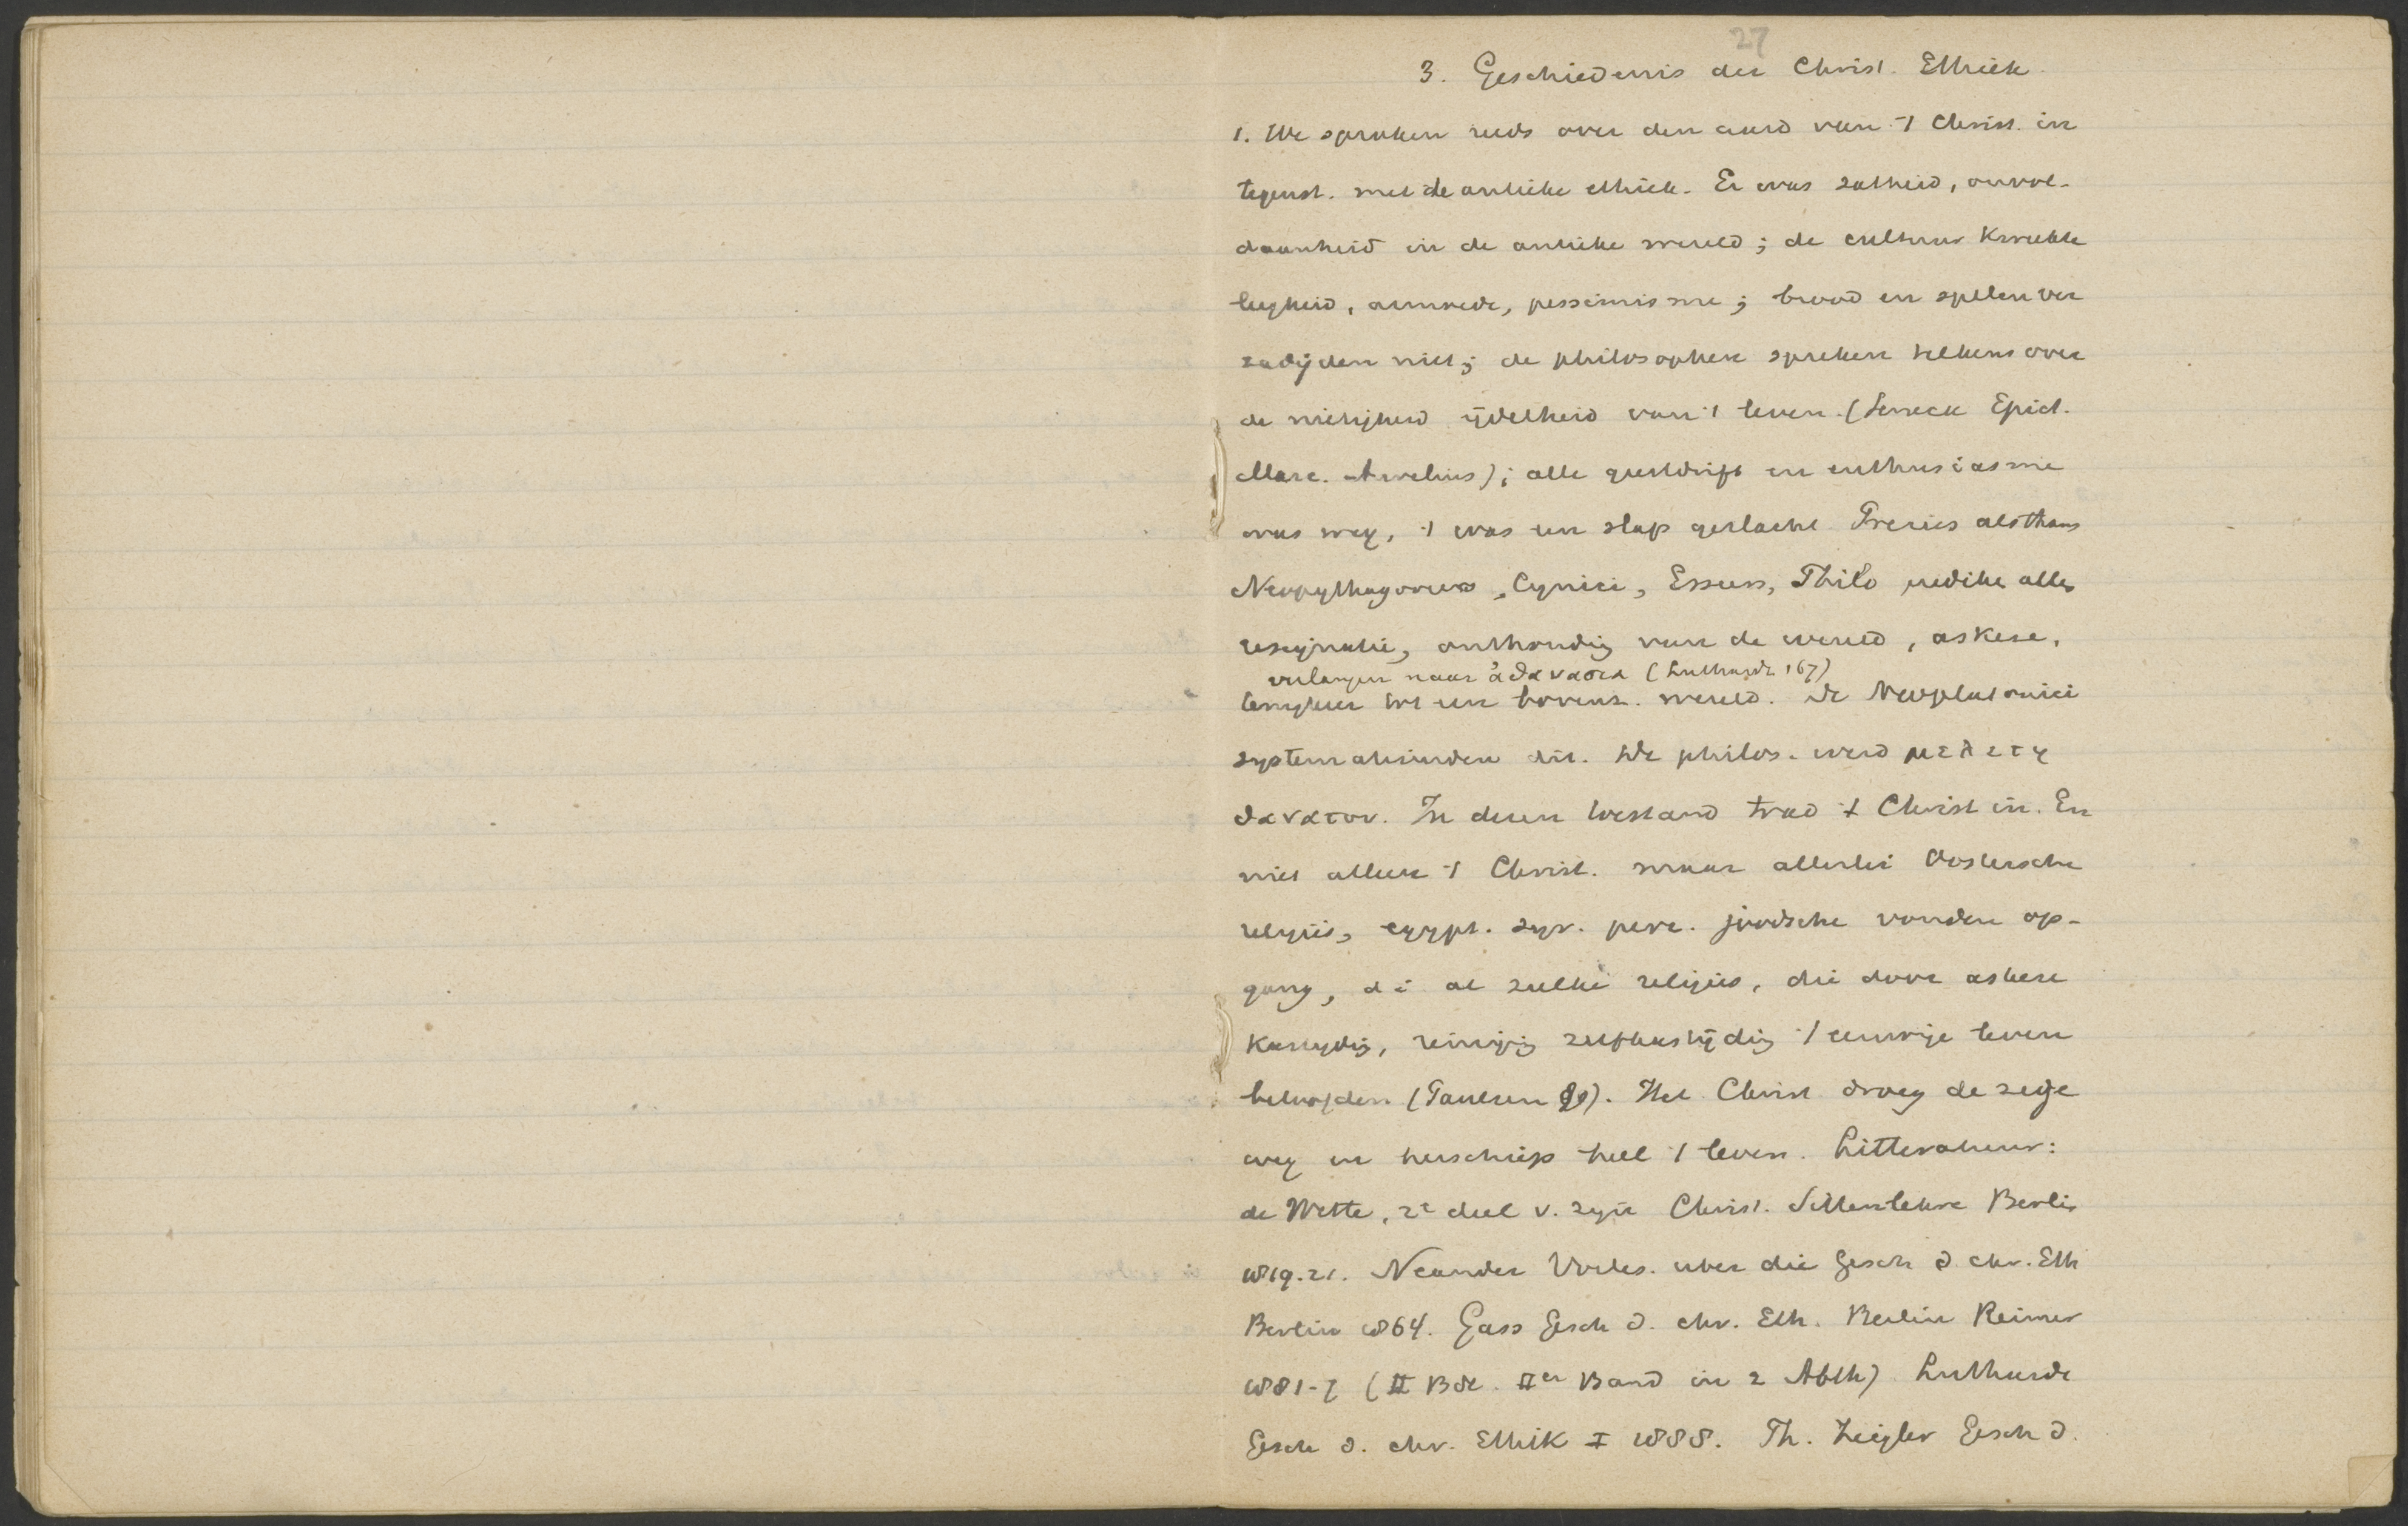 27
3. Geschiedenis der Christ. Ethiek
1. We spraken reeds over den aard van 't Christ. in
tegenst. met de antieke ethiek. Er was zatheid, onvol-
daanheid in de antieke wereld; de cultuur kweekte
leegheid, onvrede, pessimisme; brood en spelen ver
zadigden niet; de philosophen spreken telkens over
de nietigheid ijdelheid van 't leven (Seneca Epict.
Marc. Aurelius); alle geestdrift en enthusiasme
was weg, 't was een slap geslacht. Precies althans
Neopythagoreers, Cynici, Esseen, Philo predikte alles
resignatie, onthoudig van de wereld, askese,
verlangen naar ἀθανασια (Luthardt 167)
terugkeer tot een bovenz. wereld. De Neoplatonici
systematiseerden dit. De philos. werd μελετη
θανατου. In dezen toestand trad 't Christ in. En
niet alleen 't Christ. maar allerlei Oostersche
religies, egypt. syr. perz. joodsche vonden op-
gang, d i al zulke religies, die door askese
kastijdig, reinigig zelfkastijdig 't eeuwige leven
beloofden (Paulsen 90). Het Christ droeg de zege
weg en herschiep heel 't leven. Litteratuur:
de Wette, 2e deel v. zijn Christ. Sittenlehre Berlin
1819.21. Neander Vorles. uber die Gesch d. chr. Eth
Berlin 1864. Gass Gesch d. chr. Eth. Berlin Reimer
1881-7 (II Bde. IIer Band in 2 Abth) Luthardt
Gesch d. chr. Ethik I 1888. Th. Ziegler Gesch d.